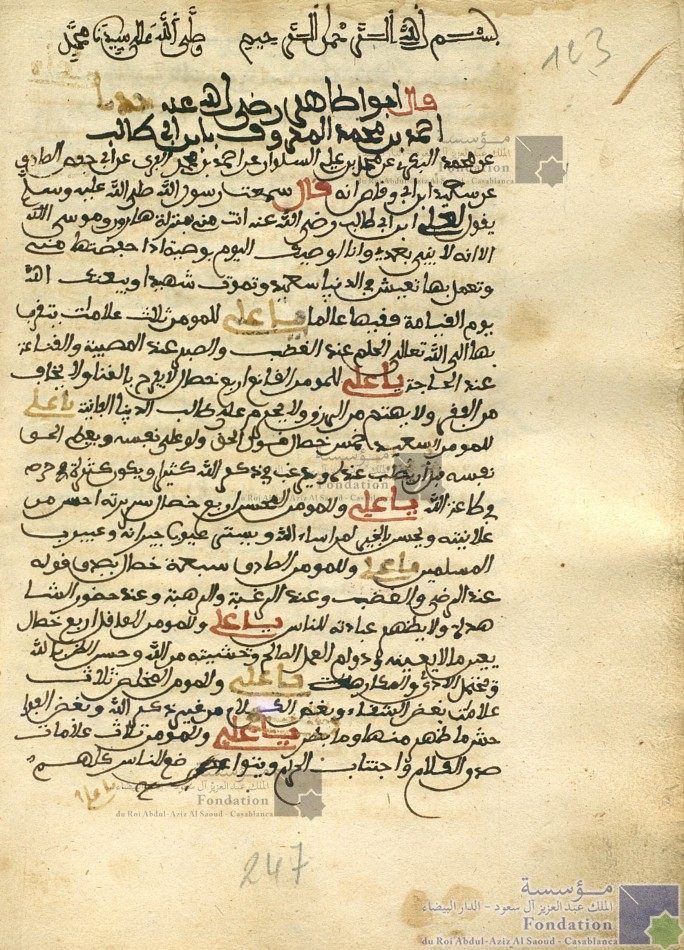 بسم الله الرحمن الرحيم وصلى الله على سيدنا محمد
123
قال ابوا طاهر رضي الله عنه حدثنا
احمد بن محمد المعروف بابن ابي طالب
عن محمد عن محمد بن علي السلوان عن احمد بن محمد عن ابي جعفر الصادق
عن سعيد ابن ابي وقاص انه قال سمعت رسول الله صلى الله عليه وسلم
يقول لعلي ابن ابي طالب رضي الله عنه انت مني منزلة هارون وموسى الا
الا انه لا نبي بعدي وانا اوصيك اليوم بوصية اذا حفضتها مني
وتعمل بها تعيش في الدنيا سعيدا وتموت شهيدا ويبعثك الله
يوم القيامة فقيها عالما يا علي للمومن ثلاث علامات يتقرب
بها الى الله تعالى الحلم عند الغضب والصبر عند المصيبة والقناعة
عند الحاجة يا علي للمومن القانع اربع خصال لا يفرح بالغنا ولا يخاف
من الفقر ولا يهتم من الرزق ولا يحزم على طالب الدنيا الفانية يا علي
للمومن السعيد خمس خصال قول الحق ولو على نفسه ويعطي الحق
نفسه من ان يطلب عنه ويرغب في ذكر الله كثيرا ويكون كثرة حرصه
وطاعة الله يا علي وللمومن المحسن اربع خصال سريرته احسن من
علانيته ويحسن بالخير لمن اساء اليه ويستر عيوب جيرانه وعيوب
المسلمين يا علي وللمومن الصادق سبعة خصال يصدق قوله
عند الرضى والغضب وعند الرغبة والرهبة وعند حضور الشا
هدة ولا يظهر عبادته للناس يا علي وللمومن العاقل اربع خصال
بغير ما لا يعينه في دوام العمل الصالح وخشيته من الله وحسن الظن بالله
وتحمل الاذى والمكارهت يا علي وللمومن المخلص ثلاث
علامات بغض الشقاء وبغض الكلام من غير ذكر الله وبغض الفوا
حش ما ظهر منها وما بطن يا علي وللمومن ثلاث علامات
صدق الكلام واجتناب الحرام ويتواضع للناس كلهم
يا علي
247
مؤسسة
الملك عبد العزيز آل سعود - الدار البيضاء
Fondation
du Roi Abdul-Aziz Al Saoud - Casablanca